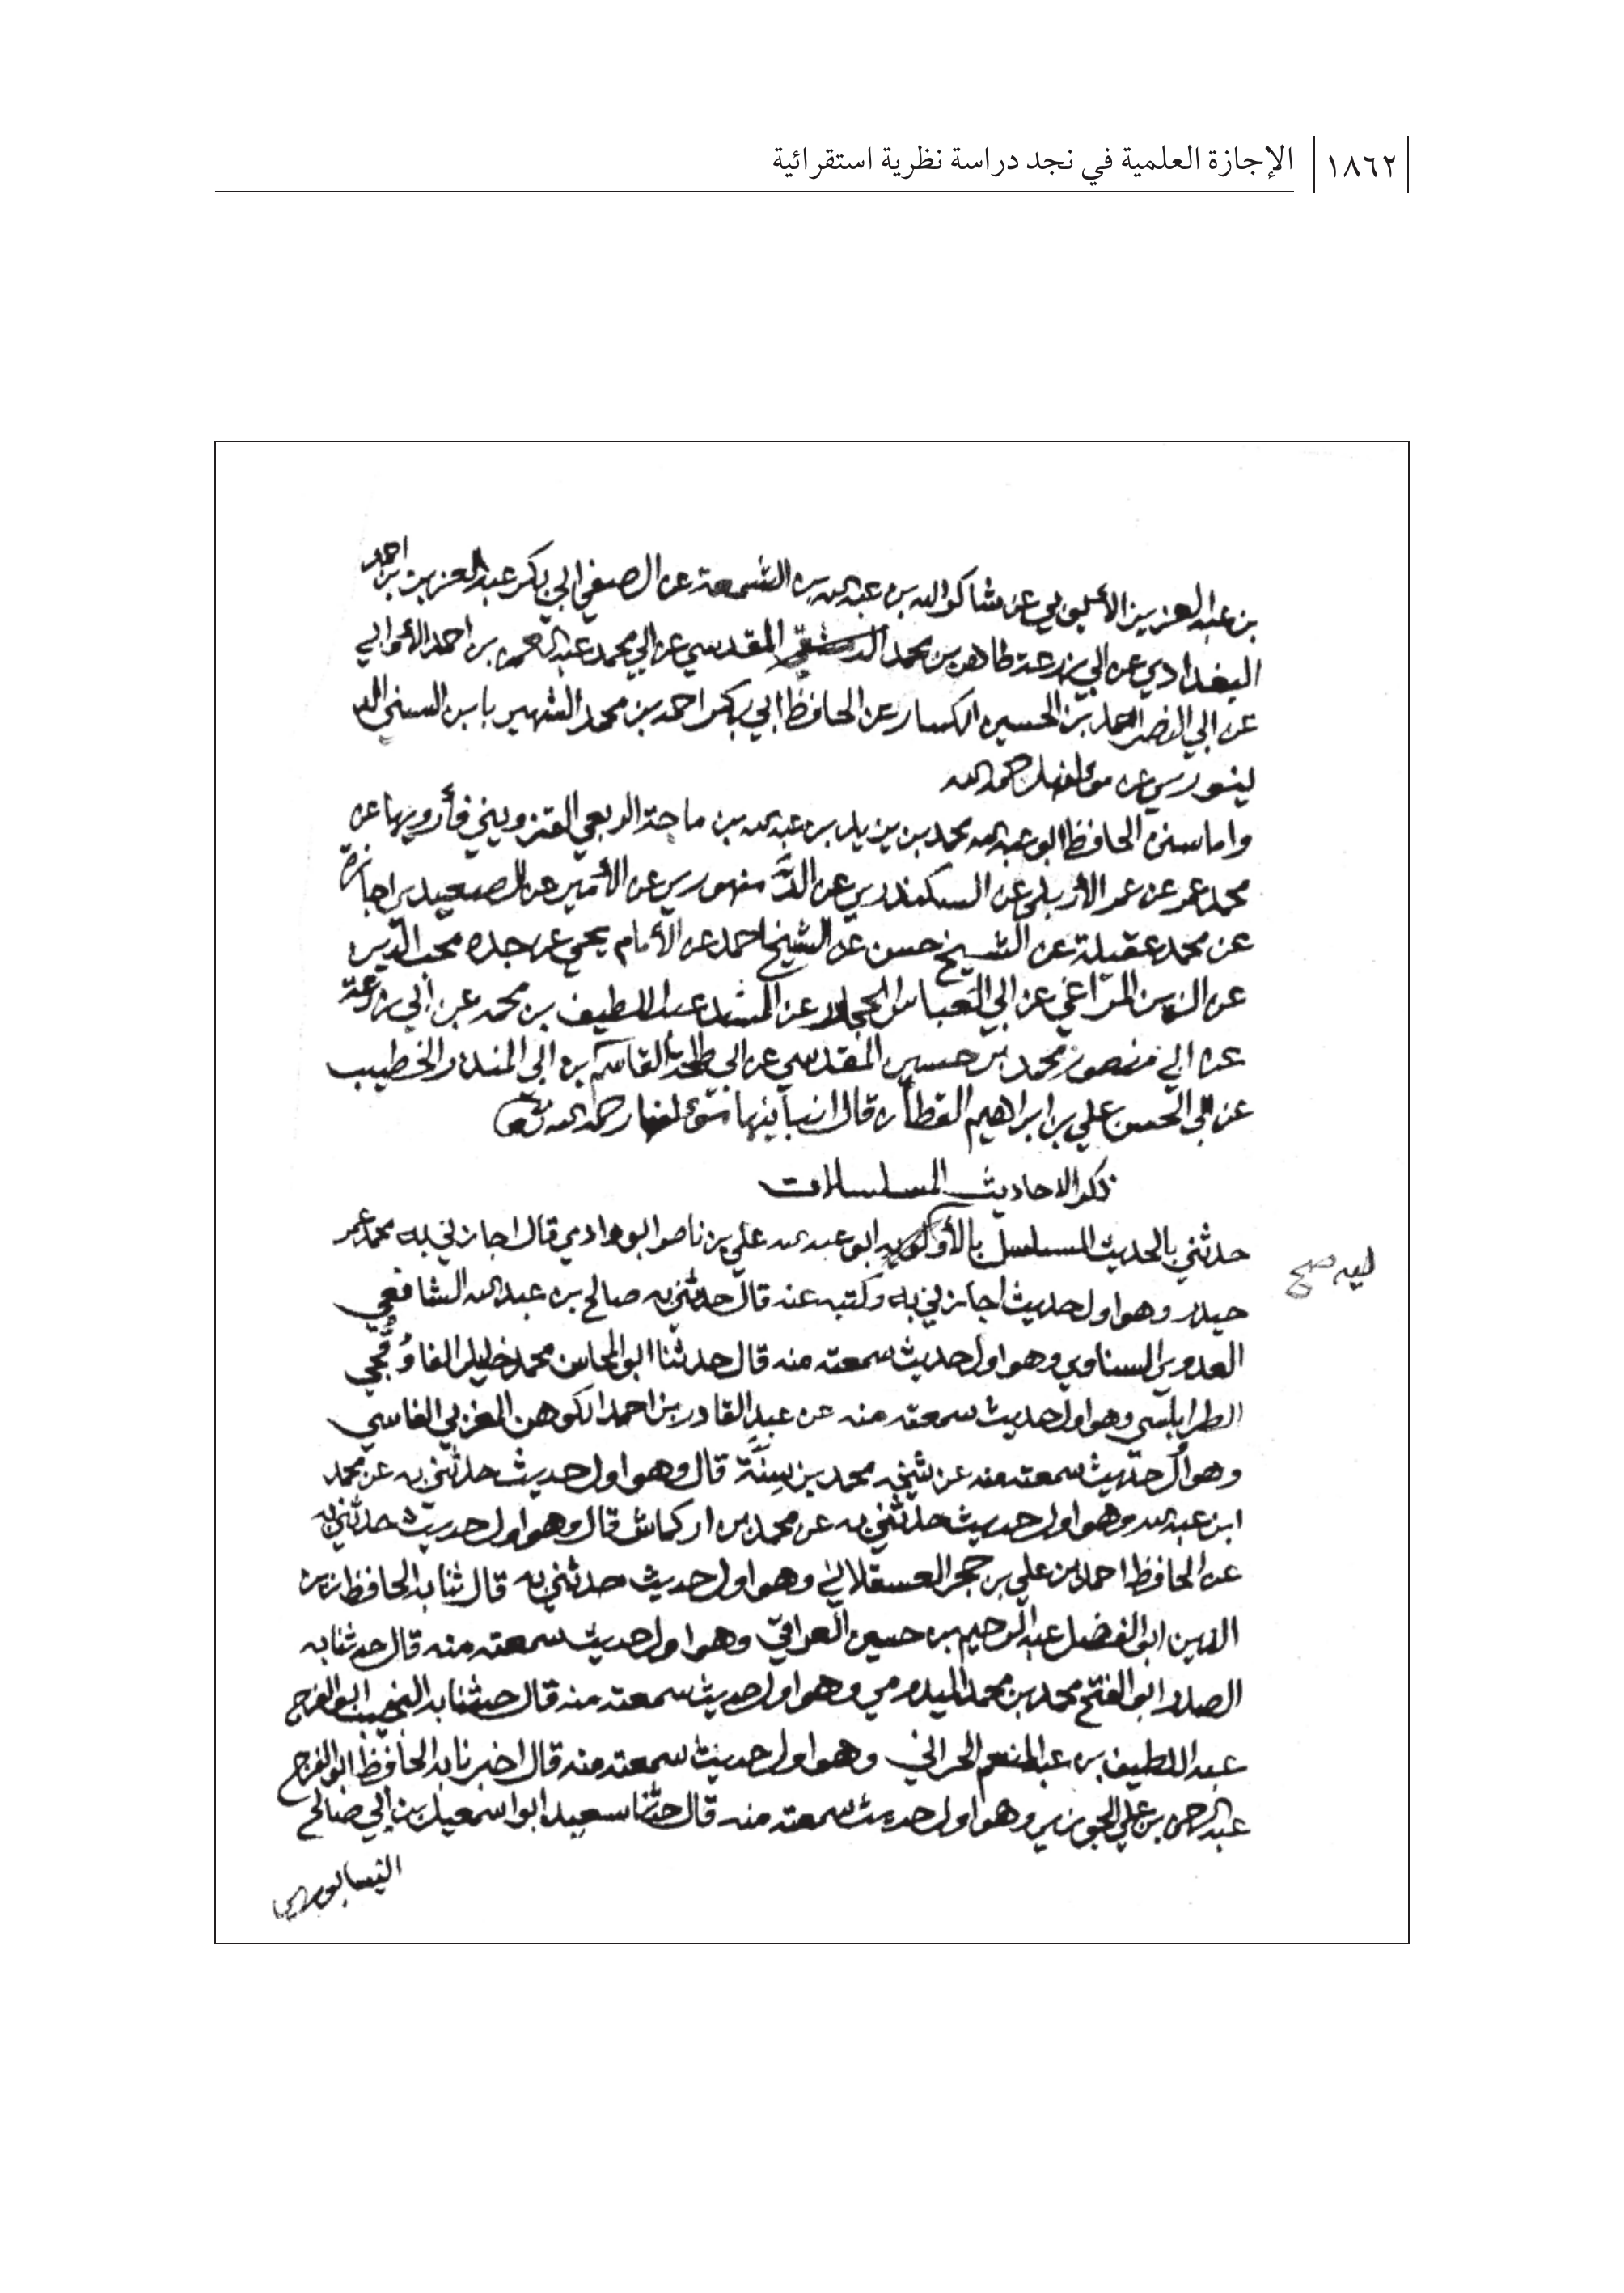 ١٨٦٢ الإجازة العلمية في نجد دراسة نظرية استقرائية
بن عبد العزيز الأيوبي عن شاكر الله بن عبد الله بن الشمعة عن الصفي ابي بكر عبد العزيز بن احمد
البغدادي عن ابي زرعة طاهر بن محمد المقدسي عن ابي محمد عبد الرحمن بن احمد
عن ابي النصر احمد بن الحسين الكسار عن الحافظ ابي بكر احمد بن محمد الشهير بابن السني الد
ينوري عن مؤلفها رحمه الله
واما سنن الحافظ ابو عبد الله محمد بن يزيد بن عبد الله بن ماجة الربعي القزويني فأرويها عن
محمد عمر عن عمر الأربلي عن السكندري عن الدمنهوري عن الأمير عن الصعيدي اجازة
عن محمد عقيلة عن الشيخ حسن عن الشيخ احمد عن الأمام يحيى عن جده محب الدين
عن الزين المراغي عن ابي العباس الحجار عن المسند عبد اللطيف بن محمد عن ابي زرعة
عن ابي منصور محمد بن حسين المقدسي عن ابي طلحة القاسم بن ابي المنذر الخطيب
عن ابي الحسن علي بن ابراهيم القطان قال انبأينها مؤلفها رحمه الله
ذكر الاحاديث المسلسلات
حدثني بالحديث المسلسل بالأولية ابو عبد الله علي بن ناصر ابو وادي قال اجازني به محمد عمر
ليه صح
حيدر وهو اول حديث اجازني به وكتبه عنه قال حدثني به صالح بن عبد الله الشافعي
العدوي السناوي وهو اول حديث سمعته منه قال حدثنا ابو المحاسن محمد خليل القاوقجي
الطرابلسي وهو اول حديث سمعته منه عن عبد القادر بن احمد الكوهن المغربي الفاسي
وهو اول حديث سمعته منه عن شيخه محمد بن سِنَّة قال وهو اول حديث حدثني به عن محمد
ابن عبد الله وهو اول حديث حدثني به عن محمد بن اركماش قال وهو اول حديث حدثني به
عن الحافظ احمد بن علي بن حجر العسقلاني وهو اول حديث حدثني به قال ثنا به الحافظ زين
الدين ابو الفضل عبد الرحيم بن حسين العراقي وهو اول حديث سمعته منه قال حدثنا به
الصدر ابو الفتح محمد بن محمد الميدومي وهو اول حديث سمعته منه قال حدثنا به النجيب ابو الفرج
عبد اللطيف بن عبد المنعم الحراني وهو اول حديث سمعته منه قال اخبرنا به الحافظ ابو الفرج
عبد الرحمن بن علي الجوزي وهو اول حديث سمعته منه قال حدثنا سعيد ابو اسمعيل بن ابي صالح
النيسابوري